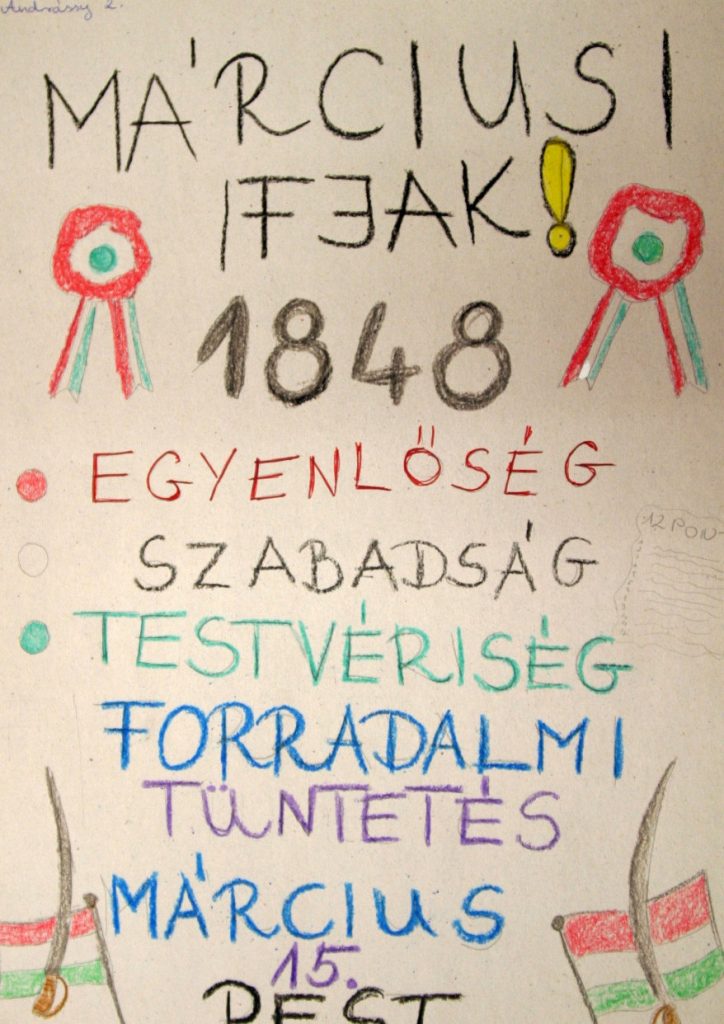 Andrássy 2.
MÁRCIUSI
IFJAK!
1848
EGYENLŐSÉG
12 PON
SZABADSÁG
TESTVÉRISÉG
FORRADALMI
TÜNTETÉS
MÁRCIUS
15.
PEST